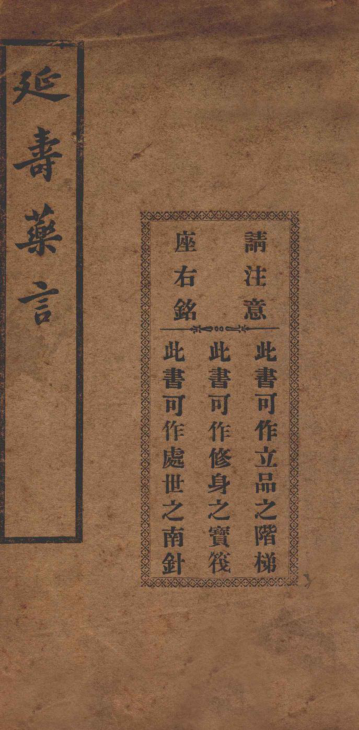 延壽藥言
請注意
座右銘
此書可作立品之階梯
此書可作修身之寶筏
此書可作處世之南針